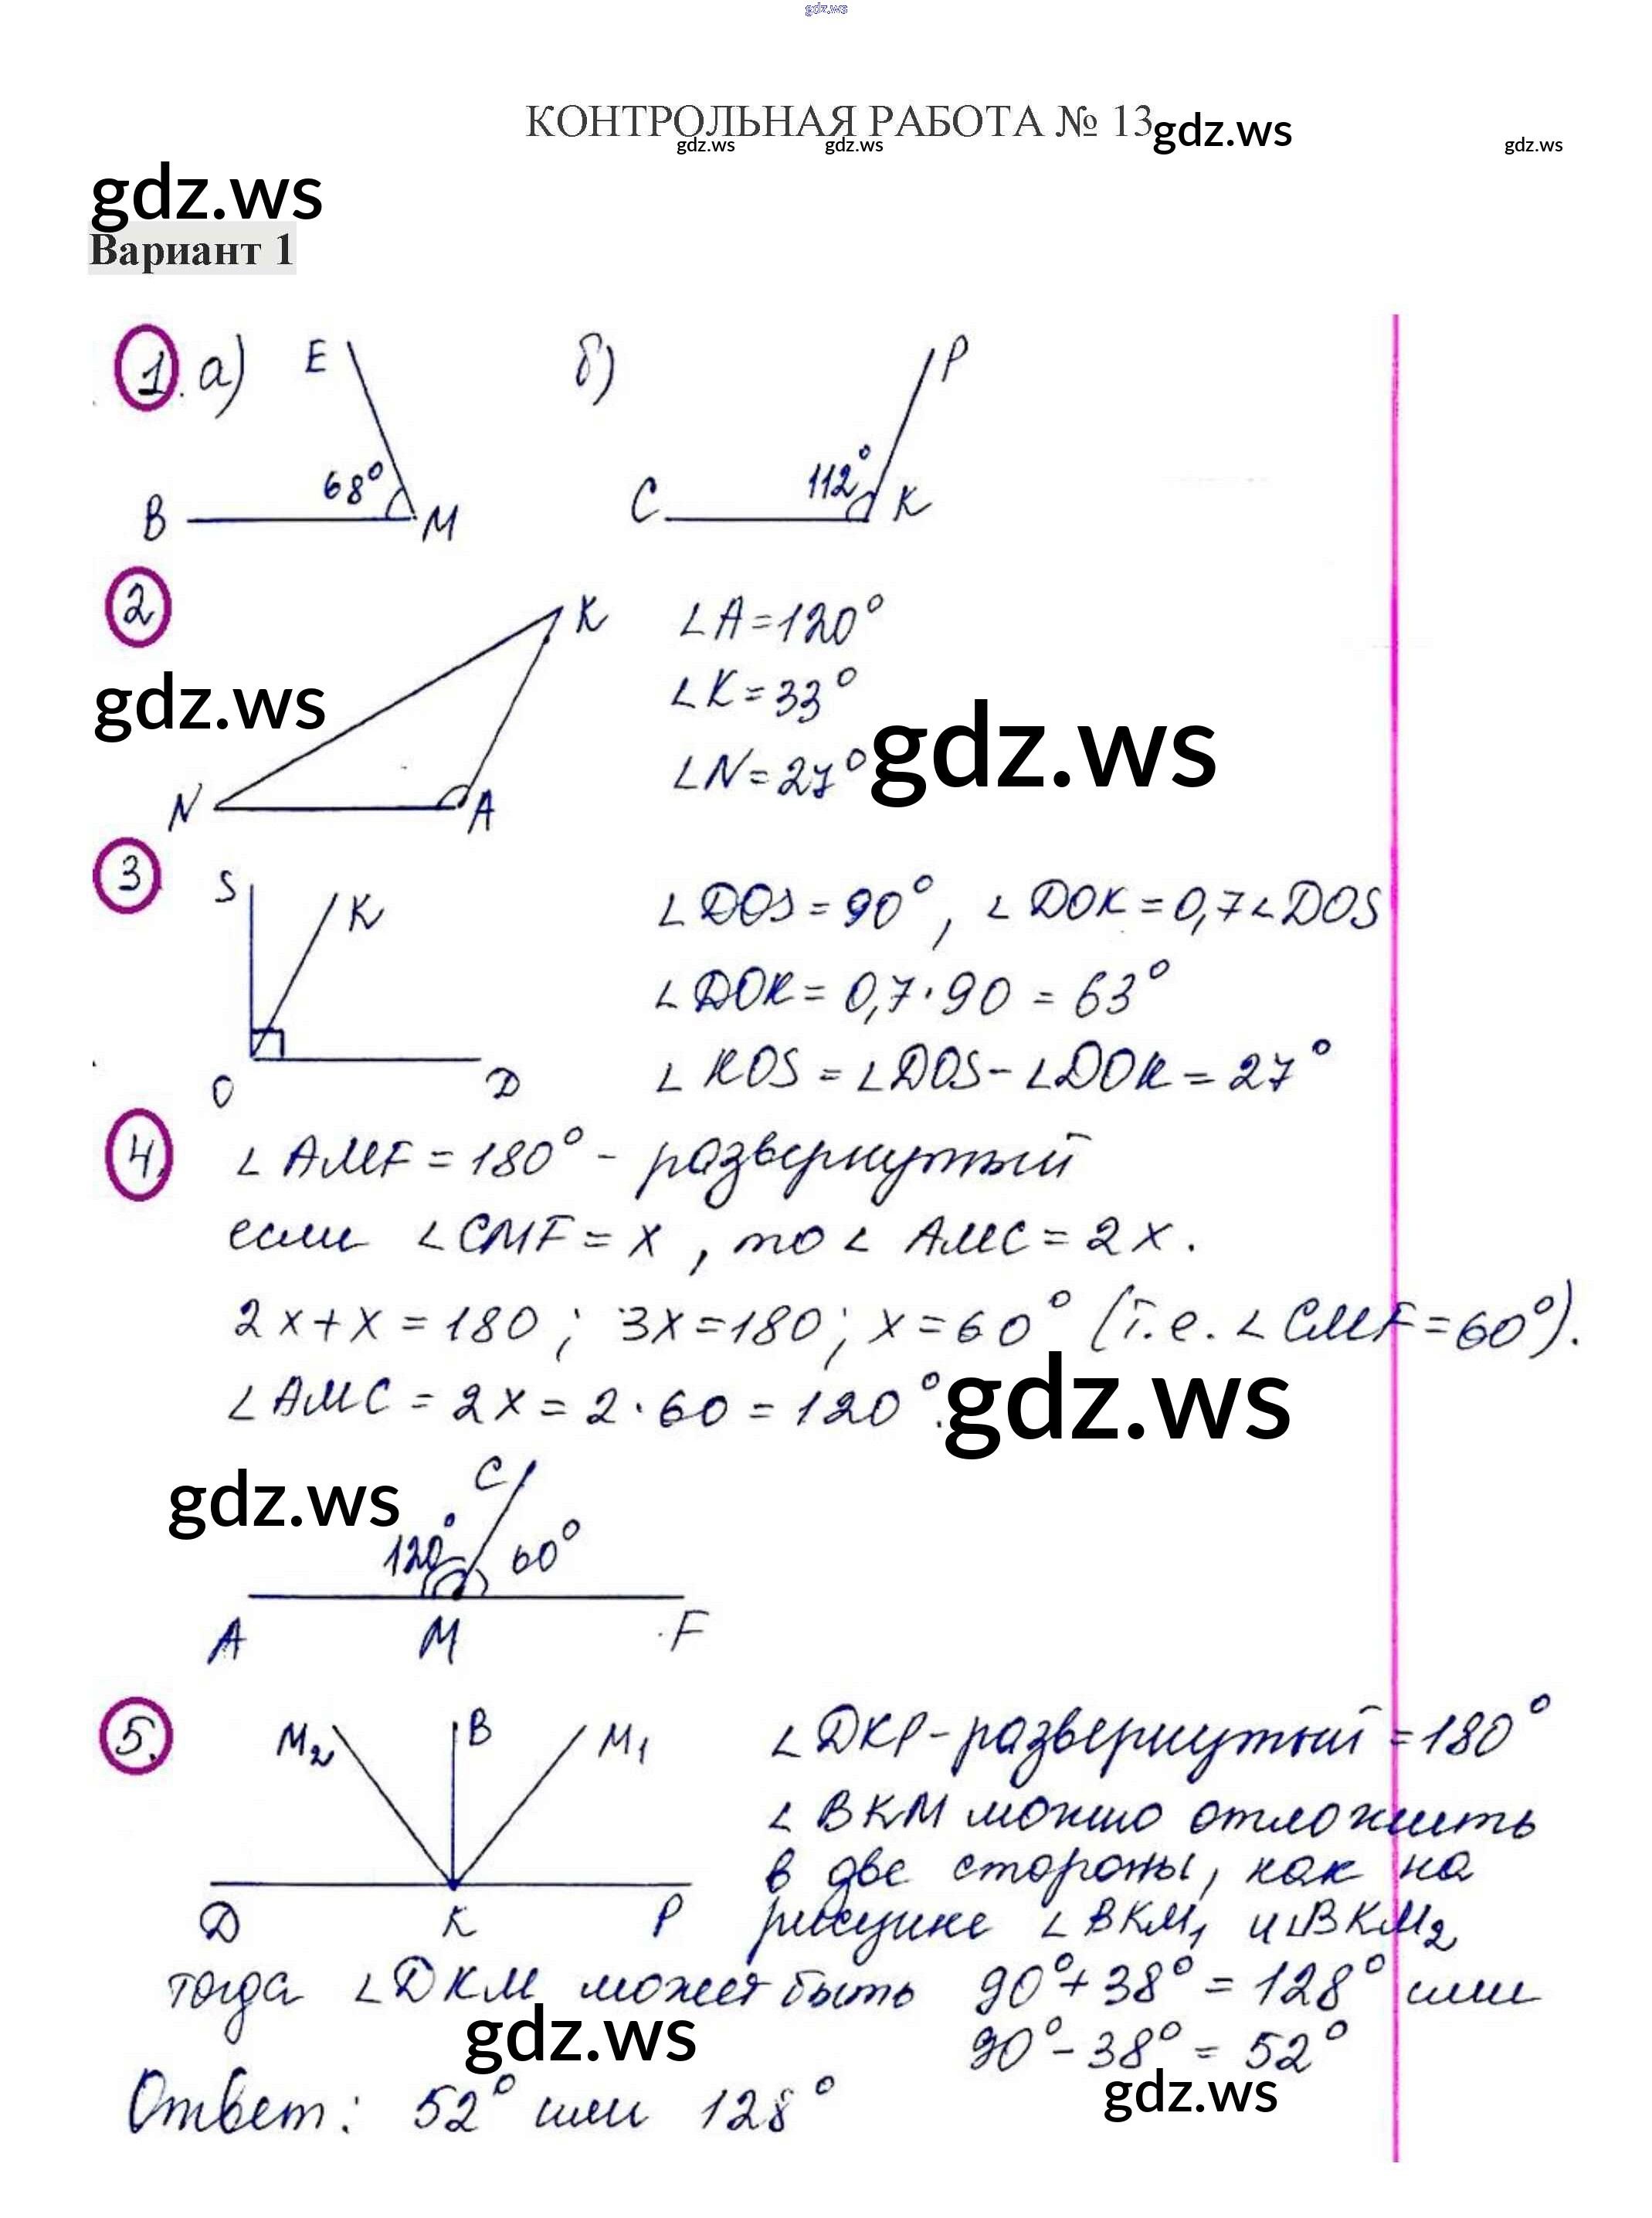 gdz.ws
КОНТРОЛЬНАЯ РАБОТА № 13 gdz.ws
gdz.ws gdz.ws gdz.ws
gdz.ws
Вариант 1
1. а) E б) P
68° 112°
B M C K
2 K ∠A=120°
∠K=33°
gdz.ws
∠N=27° gdz.ws
N A
3 S K ∠DOS=90°, ∠DOK=0,7∠DOS
∠DOK=0,7·90=63°
∠KOS=∠DOS-∠DOK=27°
O D
4. ∠AMF=180° - развернутый
если ∠CMF=x, то ∠AMC=2x.
2x+x=180; 3x=180; x=60° (т.е. ∠CMF=60°).
∠AMC=2x=2·60=120°. gdz.ws
C
gdz.ws
120° 60°
A M F
5. M₂ B M₁ ∠DKP-развернутый=180°
∠BKM можно отложить
в две стороны, как на
D K P рисунке ∠BKM₁ и ∠BKM₂
тогда ∠DKM может быть 90°+38°=128° или
gdz.ws 90°-38°=52°
gdz.ws
Ответ: 52° или 128°